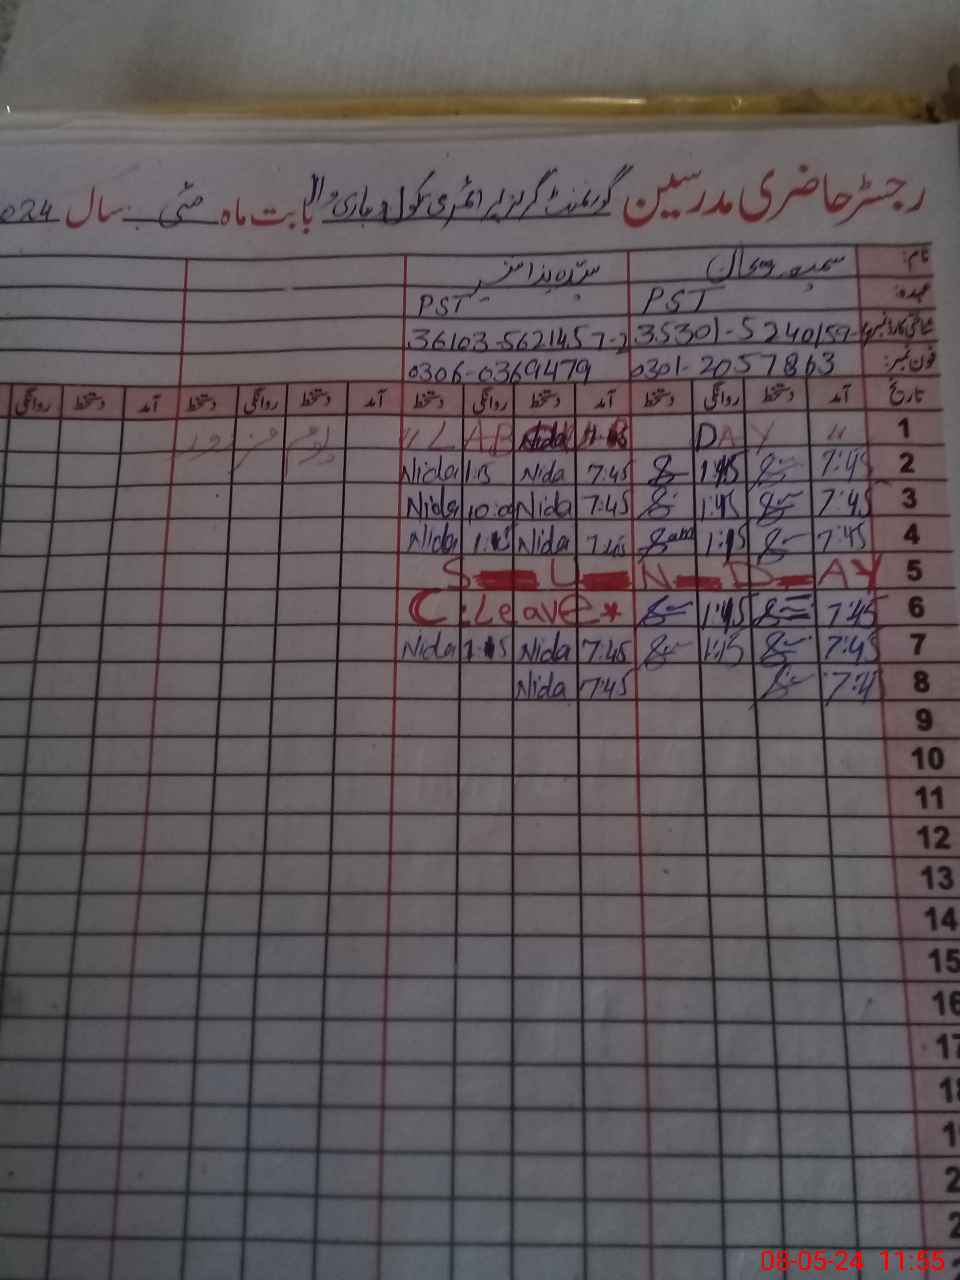 رجسٹر حاضری مدرسین گورنمنٹ گرلز پرائمری سکول بابت ماہ مئی سال 2024
نام:
عہدہ: PST PST
شناختی کارڈ نمبر 35301-5240159-4 36103-5621457-2
فون نمبر: 0301-2057863 0306-0369479
تاریخ آمد دستخط روانگی دستخط آمد دستخط روانگی دستخط آمد دستخط روانگی دستخط آمد دستخط روانگی
1 " LAB DAY " یوم مزدور
2 7:45 1:15 7:45 Nida 1:15 Nida
3 7:45 1:45 7:45 Nida 10:00 Nida
4 7:45 1:15 7:45 Nida 1:15 Nida
5 SUNDAY
6 7:45 1:15 C.Leave
7 7:45 1:15 7:45 Nida 1:15 Nida
8 7:4 7:45 Nida
9
10
11
12
13
14
15
16
17
08-05-24 11:55